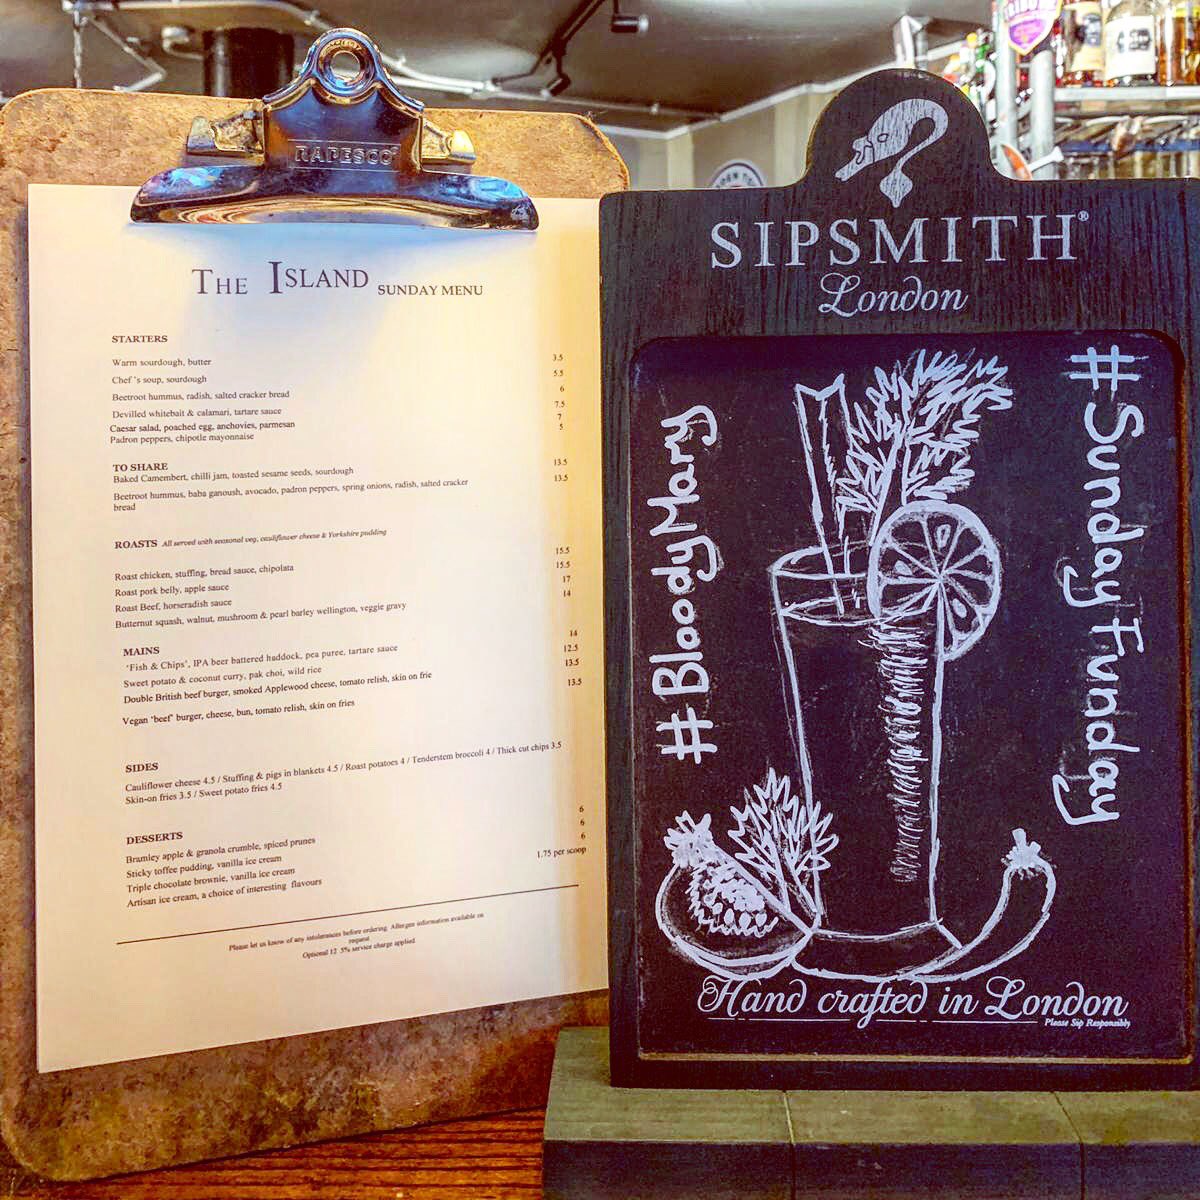 RAPESCO®
THE ISLAND SUNDAY MENU
STARTERS
Warm sourdough, butter 3.5
Chef 's soup, sourdough 5.5
Beetroot hummus, radish, salted cracker bread 6
Devilled whitebait & calamari, tartare sauce 7.5
Caesar salad, poached egg, anchovies, parmesan 7
Padron peppers, chipotle mayonnaise 5
TO SHARE
Baked Camembert, chilli jam, toasted sesame seeds, sourdough 13.5
Beetroot hummus, baba ganoush, avocado, padron peppers, spring onions, radish, salted cracker 13.5
bread
ROASTS All served with seasonal veg, cauliflower cheese & Yorkshire pudding
Roast chicken, stuffing, bread sauce, chipolata 15.5
Roast pork belly, apple sauce 15.5
Roast Beef, horseradish sauce 17
Butternut squash, walnut, mushroom & pearl barley wellington, veggie gravy 14
MAINS
'Fish & Chips', IPA beer battered haddock, pea puree, tartare sauce 14
Sweet potato & coconut curry, pak choi, wild rice 12.5
Double British beef burger, smoked Applewood cheese, tomato relish, skin on frie 13.5
Vegan 'beef' burger, cheese, bun, tomato relish, skin on fries 13.5
SIDES
Cauliflower cheese 4.5 / Stuffing & pigs in blankets 4.5 / Roast potatoes 4 / Tenderstem broccoli 4 / Thick cut chips 3.5
Skin-on fries 3.5 / Sweet potato fries 4.5
DESSERTS
Bramley apple & granola crumble, spiced prunes 6
Sticky toffee pudding, vanilla ice cream 6
Triple chocolate brownie, vanilla ice cream 6
Artisan ice cream, a choice of interesting flavours 1.75 per scoop
Please let us know of any intolerances before ordering. Allergen information available on
request
Optional 12 5% service charge applied.
SIPSMITH®
London
#BloodyMary
#SundayFunday
Hand crafted in London
Please Sip Responsibly
TRIBUTE